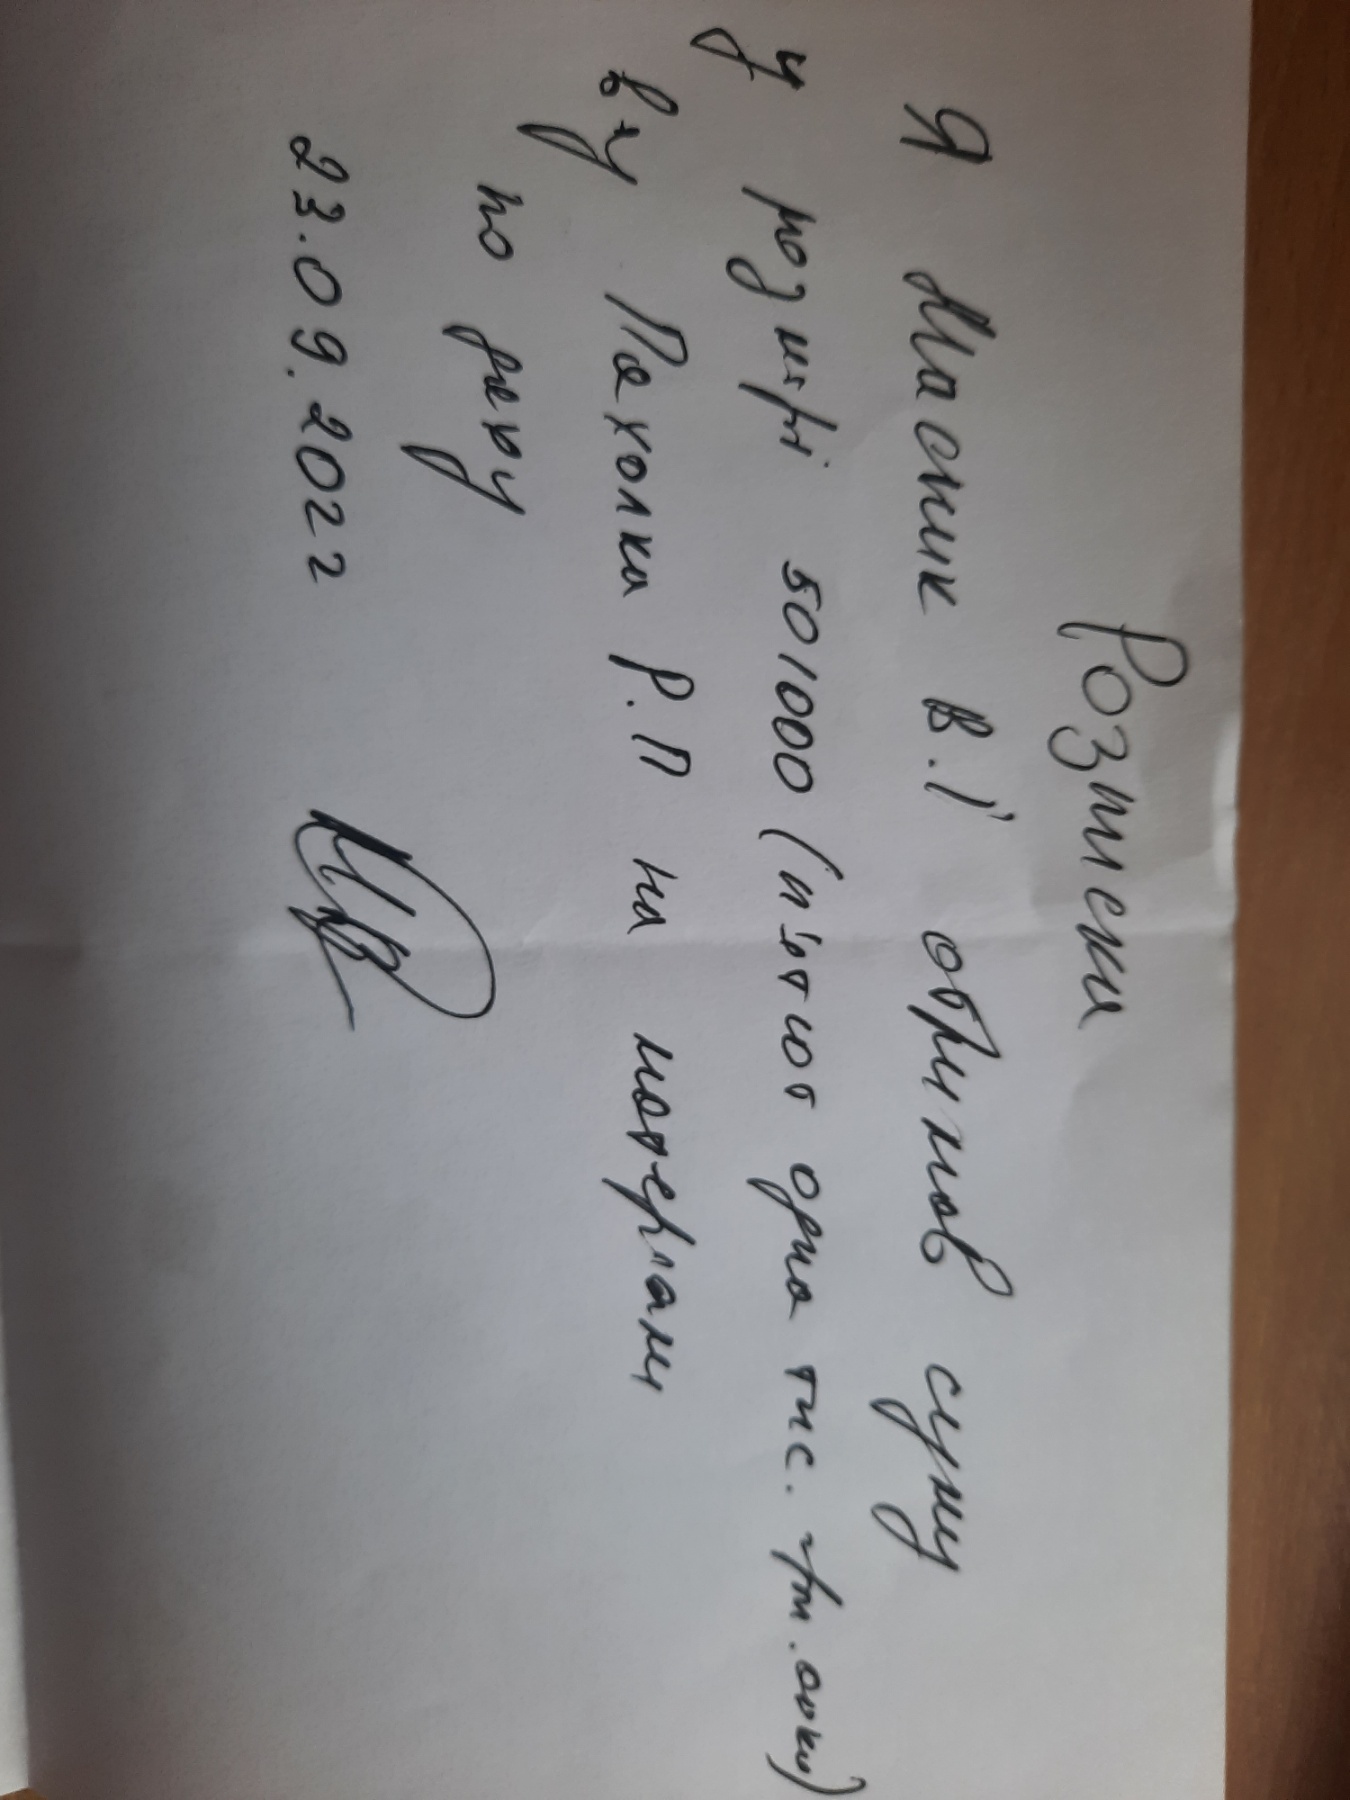 Розписка
Я Масник В.І отримав суму
у розмірі 501000 (п'ятсот одна тис. грн.
від Пахолка Р.П на матеріали
по даху
23.09.2022